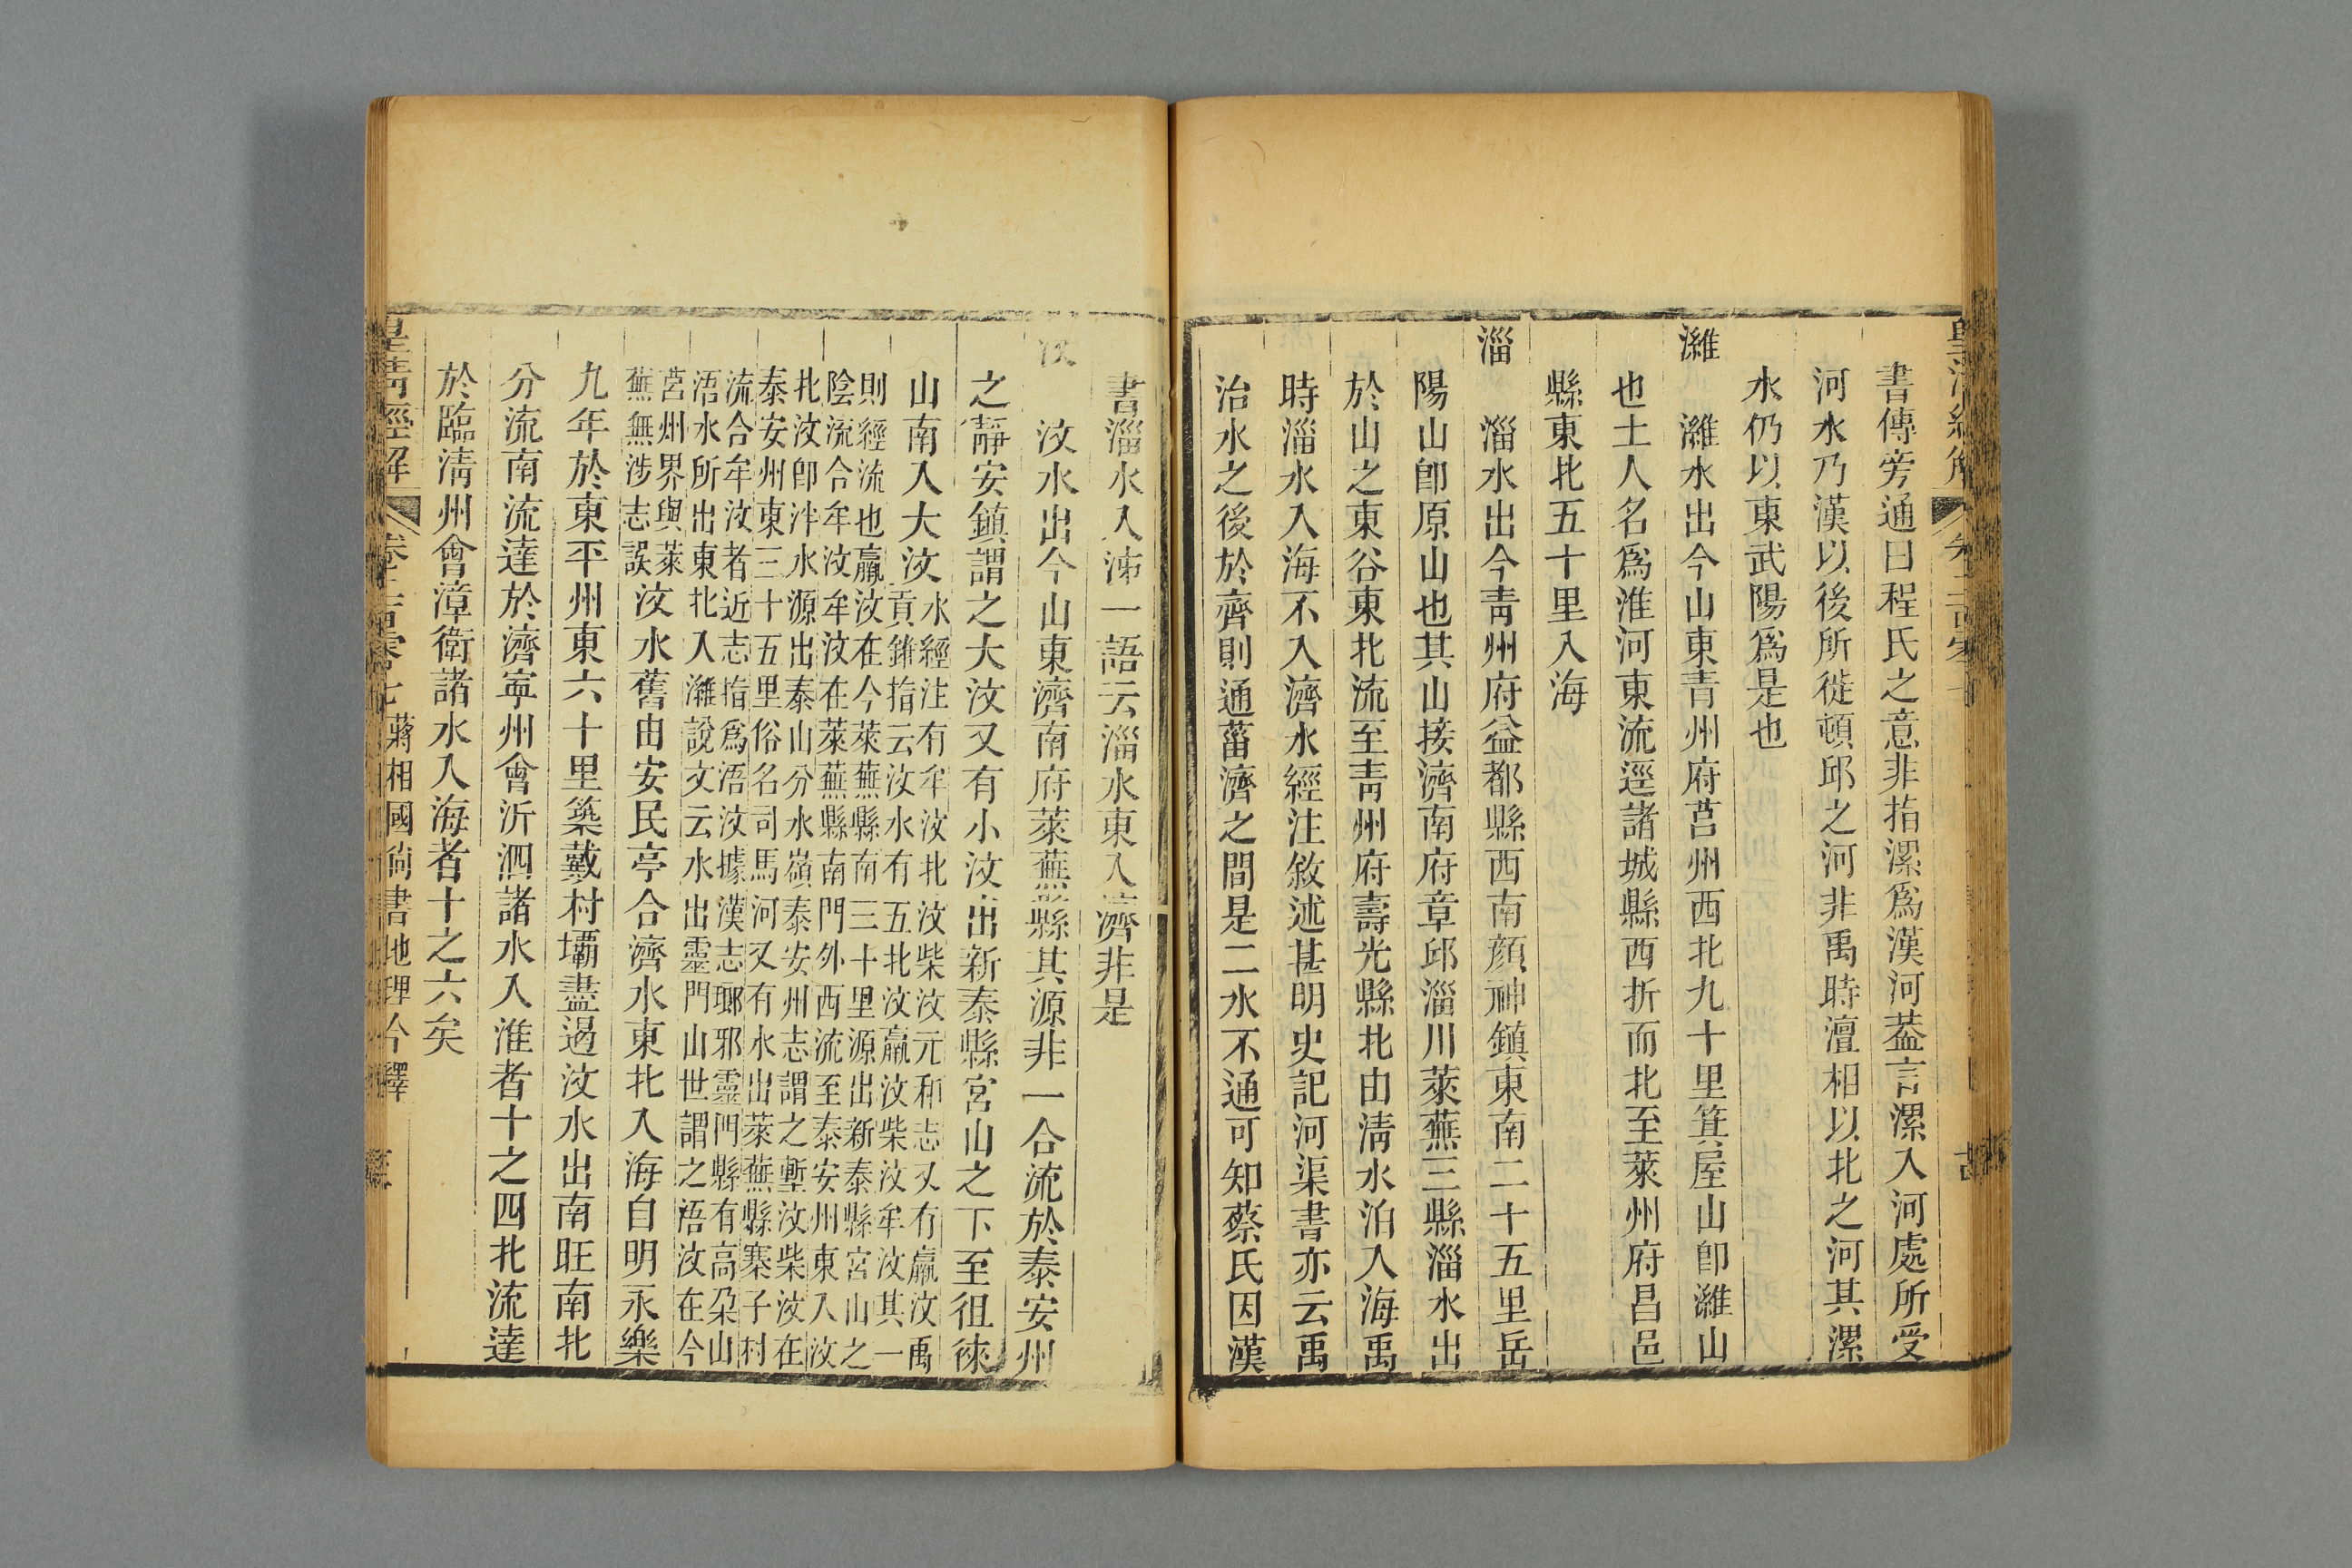 皇清經解
書傳旁通曰程氏之意非指漯爲漢河葢言漯入河處所受
河水乃漢以後所徙頓邱之河非禹時澶相以北之河其漯
水仍以東武陽爲是也
濰 濰水出今山東青州府莒州西北九十里箕屋山卽濰山
也土人名爲淮河東流逕諸城縣西折而北至萊州府昌邑
縣東北五十里入海
淄 淄水出今靑州府益都縣西南顔神鎭東南二十五里岳
陽山卽原山也其山接濟南府章邱淄川萊蕪三縣淄水出
於山之東谷東北流至靑州府壽光縣北由淸水泊入海禹
時淄水入海不入濟水經注敘述甚明史記河渠書亦云禹
治水之後於齊則通菑濟之間是二水不通可知蔡氏因漢
書淄水入泲一語云淄水東入濟非是
汶 汶水出今山東濟南府萊蕪縣其源非一合流於泰安州
之靜安鎭謂之大汶又有小汶出新泰縣宮山之下至徂徠
山南入大汶水經注有牟汶北汶柴汶元和志又有嬴汶禹
貢錐指云汶水有五北汶嬴汶柴汶牟汶其一
則經流也嬴汶在今萊蕪縣南三十里源出新泰縣宮山之
陰流合牟汶牟汶在萊蕪縣南門外西流至泰安州東入汶
北汶卽泮水源出泰山分水嶺泰安州志謂之塹汶柴汶在
泰安州東三十五里俗名司馬河又有水出萊蕪縣寨子村
流合牟汶者近志指爲浯汶據漢志瑯邪靈門縣有高柔山
浯水所出東北入濰說文云水出靈門山世謂之浯汶在今
莒州界與萊
蕪無涉志誤汶水舊由安民亭合濟水東北入海自明永樂
九年於東平州東六十里築戴村壩盡遏汶水出南旺南北
分流南流達於濟寧州會沂泗諸水入淮者十之四北流達
於臨淸州會漳衛諸水入海者十之六矣
皇淸經解 卷二百零七 蔣相國尙書地理今釋